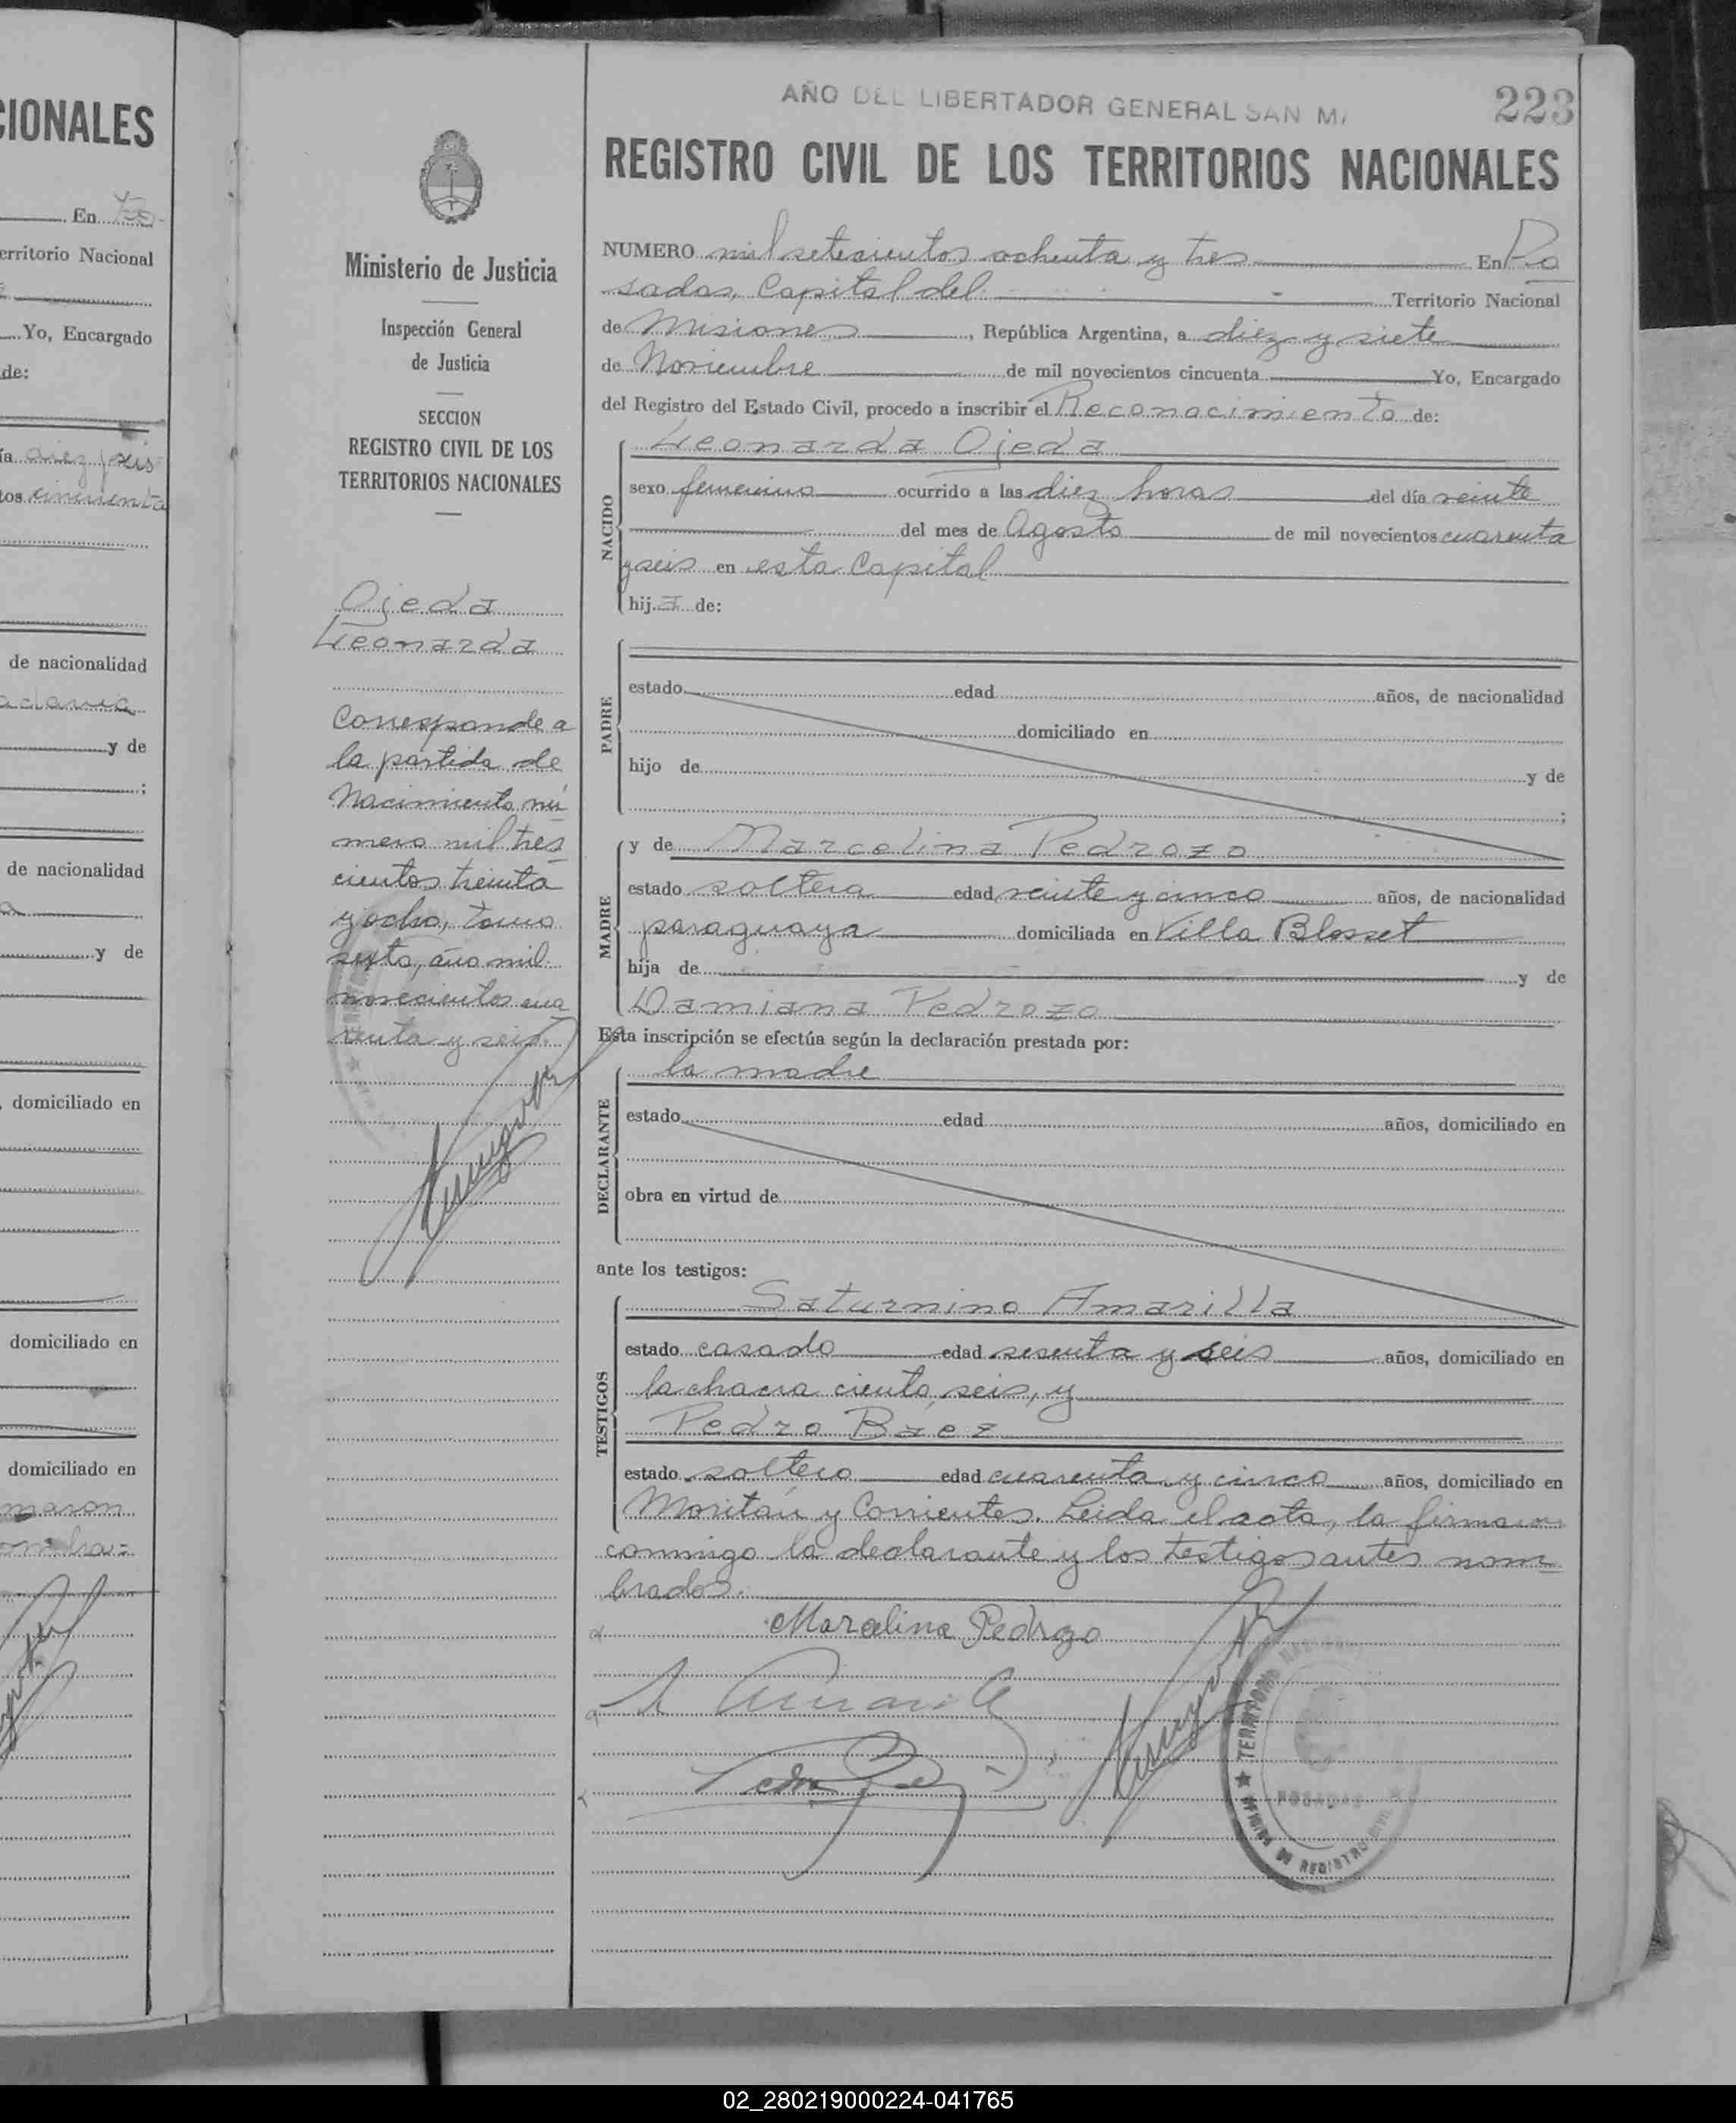 CIONALES
En Po-
erritorio Nacional
Yo, Encargado
de:
ía diez y seis
tos cincuenta
de nacionalidad
y de
;
de nacionalidad
y de
, domiciliado en
domiciliado en
domiciliado en
Ministerio de Justicia
Inspección General
de Justicia
SECCION
REGISTRO CIVIL DE LOS
TERRITORIOS NACIONALES
Ojeda
Leonarda
Corresponde a
la partida de
Nacimiento nú
mero mil tres
cientos treinta
y ocho, tomo
sexto, año mil
novecientos cua
renta y seis.
AÑO DEL LIBERTADOR GENERAL SAN MA
223
REGISTRO CIVIL DE LOS TERRITORIOS NACIONALES
NUMERO mil setecientos ochenta y tres En Po
sadas, Capital del Territorio Nacional
de Misiones, República Argentina, a diez y siete
de Noviembre de mil novecientos cincuenta Yo, Encargado
del Registro del Estado Civil, procedo a inscribir el Reconocimiento de:
NACIDO
Leonarda Ojeda
sexo femenino ocurrido a las diez horas del día veinte
del mes de Agosto de mil novecientos cuarenta
y seis en esta Capital
hija de:
PADRE
estado edad años, de nacionalidad
domiciliado en
hijo de y de
;
MADRE
y de Marcelina Pedrozo
estado soltera edad veinte y cinco años, de nacionalidad
paraguaya domiciliada en Villa Blosset
hija de y de
Damiana Pedrozo
Esta inscripción se efectúa según la declaración prestada por:
DECLARANTE
la madre
estado edad años, domiciliado en
obra en virtud de
ante los testigos:
TESTIGOS
Saturnino Amarilla
estado casado edad sesenta y seis años, domiciliado en
la chacra ciento seis, y
Pedro Báez
estado soltero edad cuarenta y cinco años, domiciliado en
Moritán y Corrientes. Leida el acta, la firmaron
conmigo la declarante y los testigos antes nom
brados.
Marcelina Pedrozo
TERRITORIO NACIONAL
POSADAS
OFICINA DE REGISTRO CIVIL
02_280219000224-041765